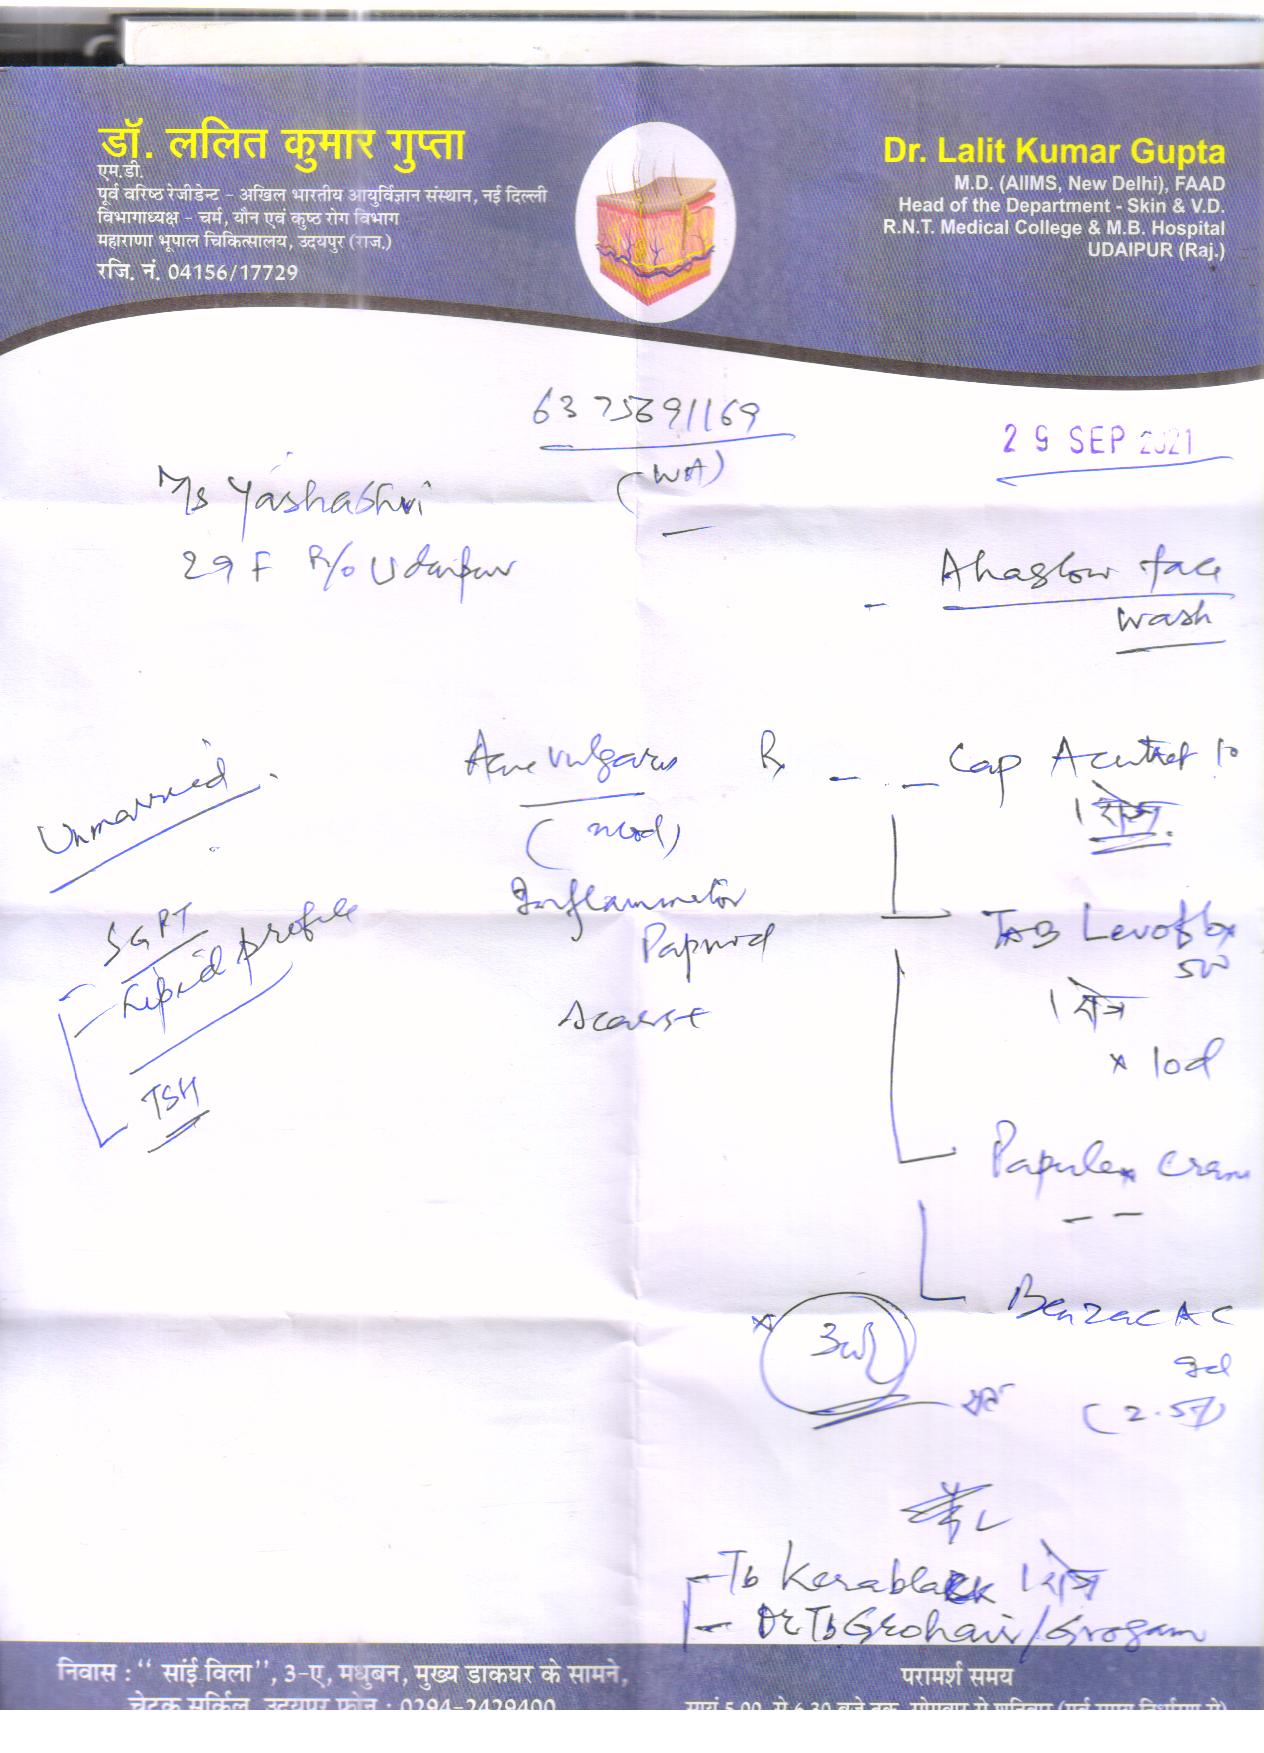 डॉ. ललित कुमार गुप्ता
एम.डी.
पूर्व वरिष्ठ रेजीडेन्ट - अखिल भारतीय आयुर्विज्ञान संस्थान, नई दिल्ली
विभागाध्यक्ष - चर्म, यौन एवं कुष्ठ रोग विभाग
महाराणा भूपाल चिकित्सालय, उदयपुर (राज.)
रजि. नं. 04156/17729
Dr. Lalit Kumar Gupta
M.D. (AIIMS, New Delhi), FAAD
Head of the Department - Skin & V.D.
R.N.T. Medical College & M.B. Hospital
UDAIPUR (Raj.)
6375691169
(WA)
29 SEP 2021
Ms Yashashri
29 F R/o Udaipur
Ahaglow face
wash
Unmarried
SGPT
Lipid profile
TSH
Acne vulgaris
(mod)
Inflammator
R
Cap Acutret 10
1 रोज
TAB Levoflox
500
1 रोज
x 10d
Papulex cream
Benzac AC
gel
(2.5%)
Tb Kerablack 1 रोज
Or Tb Grohair/Grogain
निवास : "सांई विला", 3-ए, मधुबन, मुख्य डाकघर के सामने,
चेटक सर्किल, उदयपुर फोन : 0294-2429400
परामर्श समय
सायं 5.00 से 6.30 बजे तक, सोमवार से शनिवार (पूर्व समय निर्धारण से)